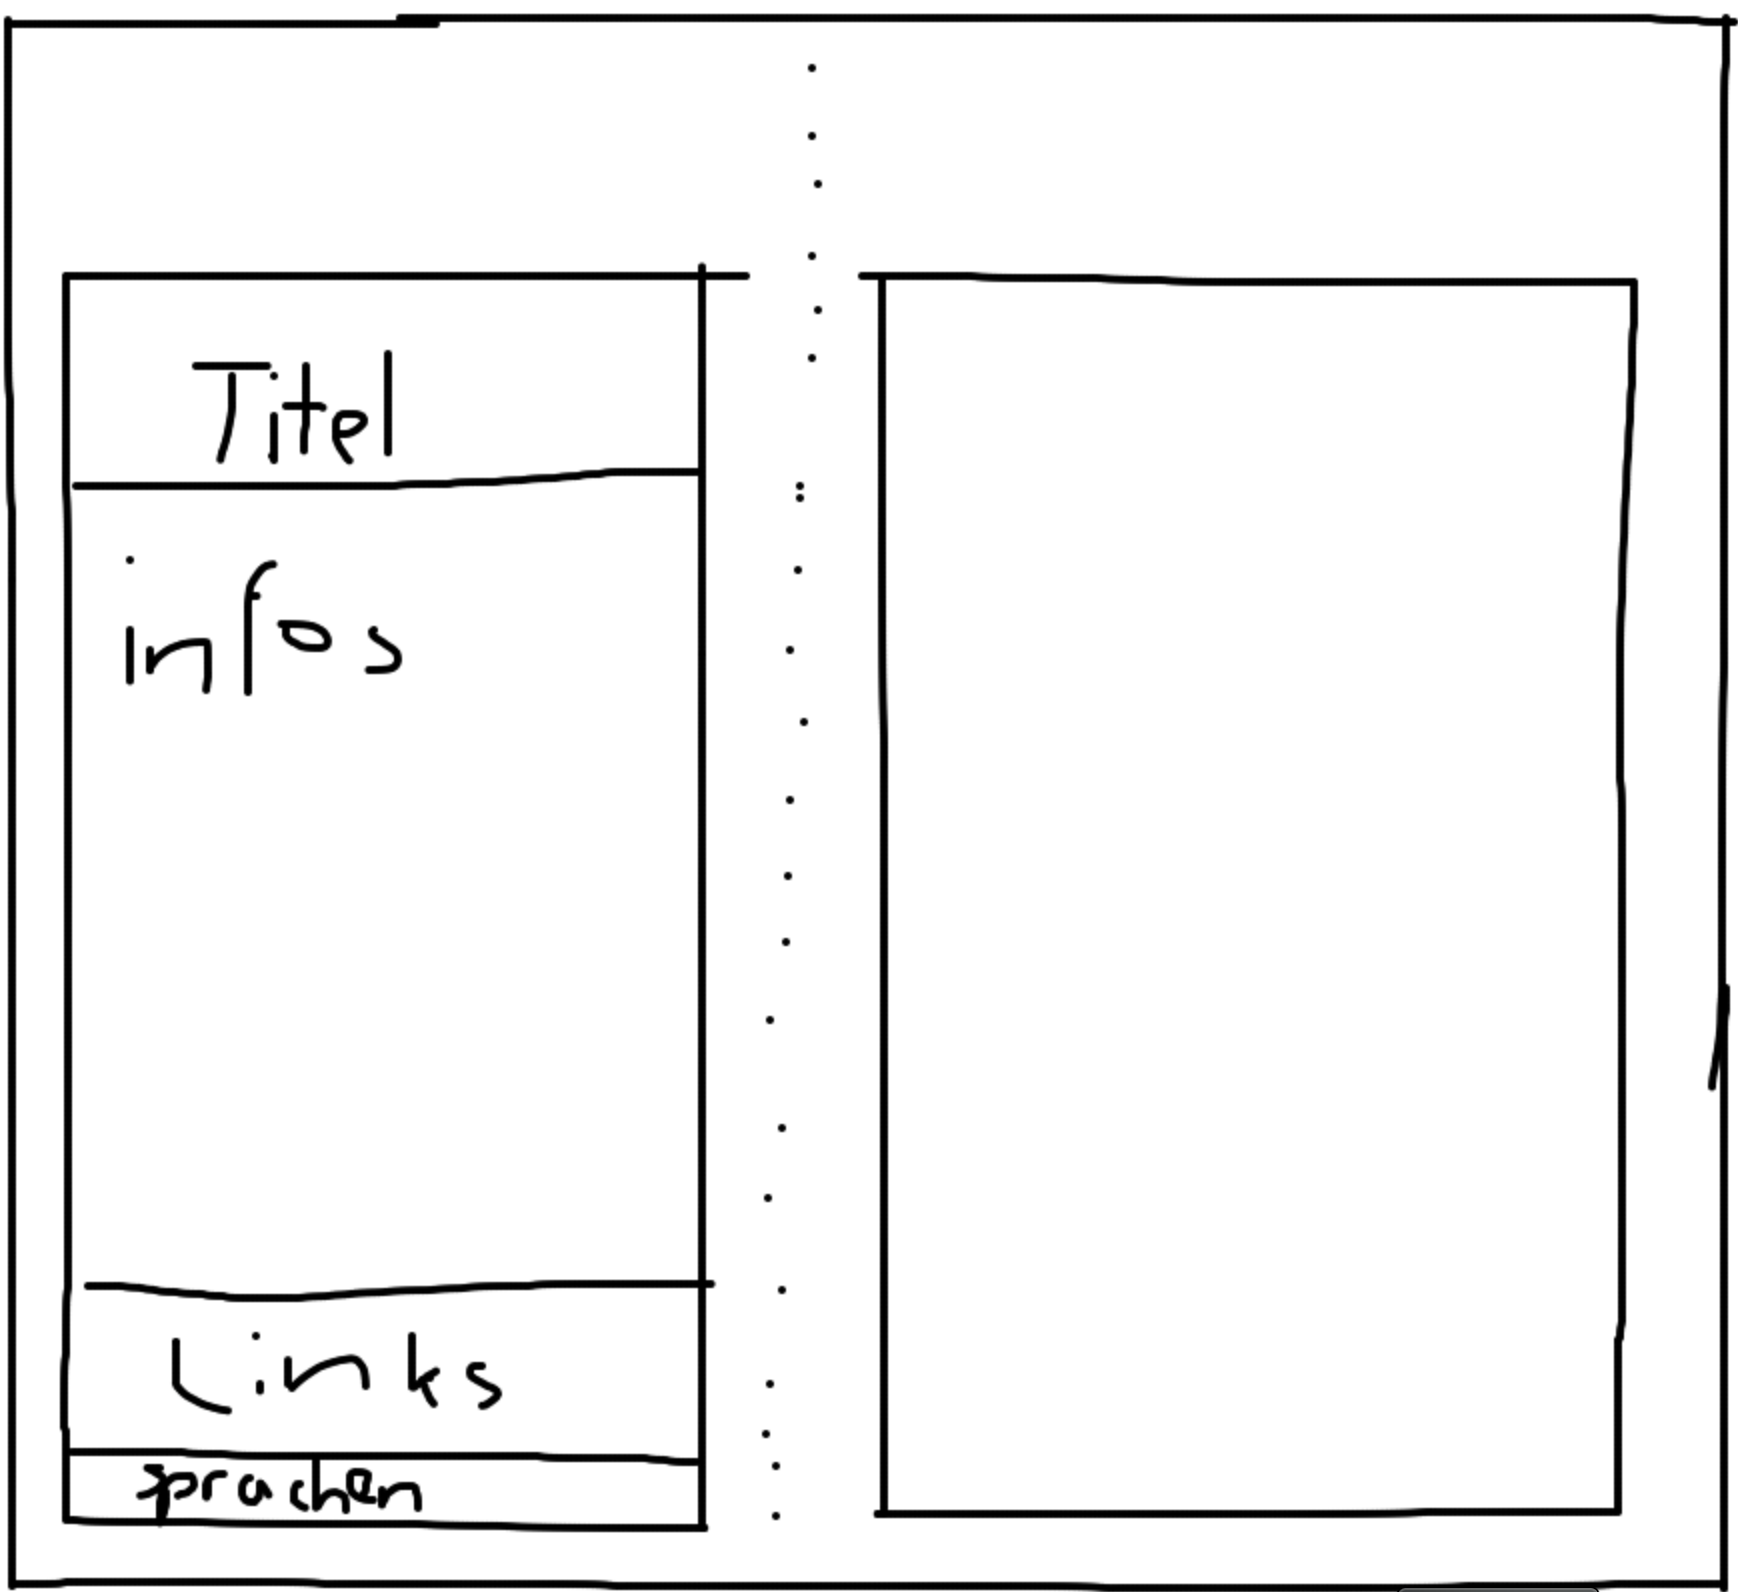 Titel
infos
Links
sprachen